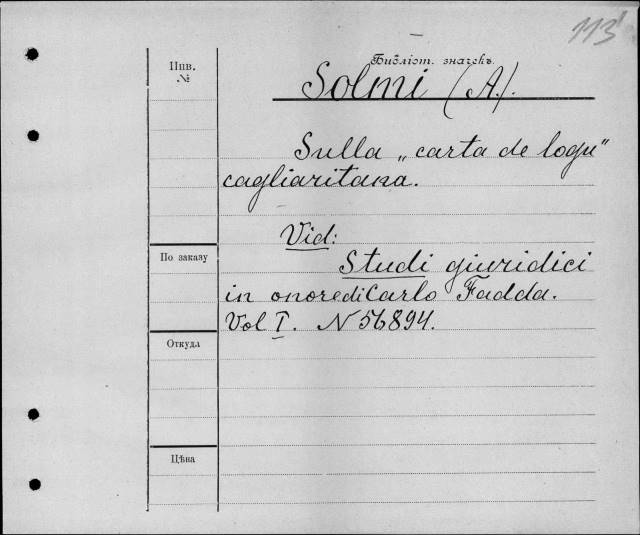 113
Библіот. значекъ.
Инв.
№
Solmi (A.).
Sulla „carta de logu"
cagliaritana.
Vid:
По заказу
Studi giuridici
in onore di Carlo Fadda.
Vol I. N 56894.
Откуда
Цѣна